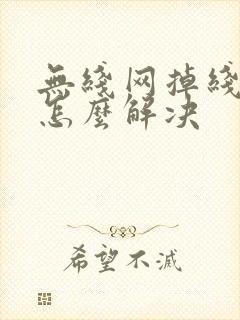 無綫网掉綫
怎麽解决
希望不滅